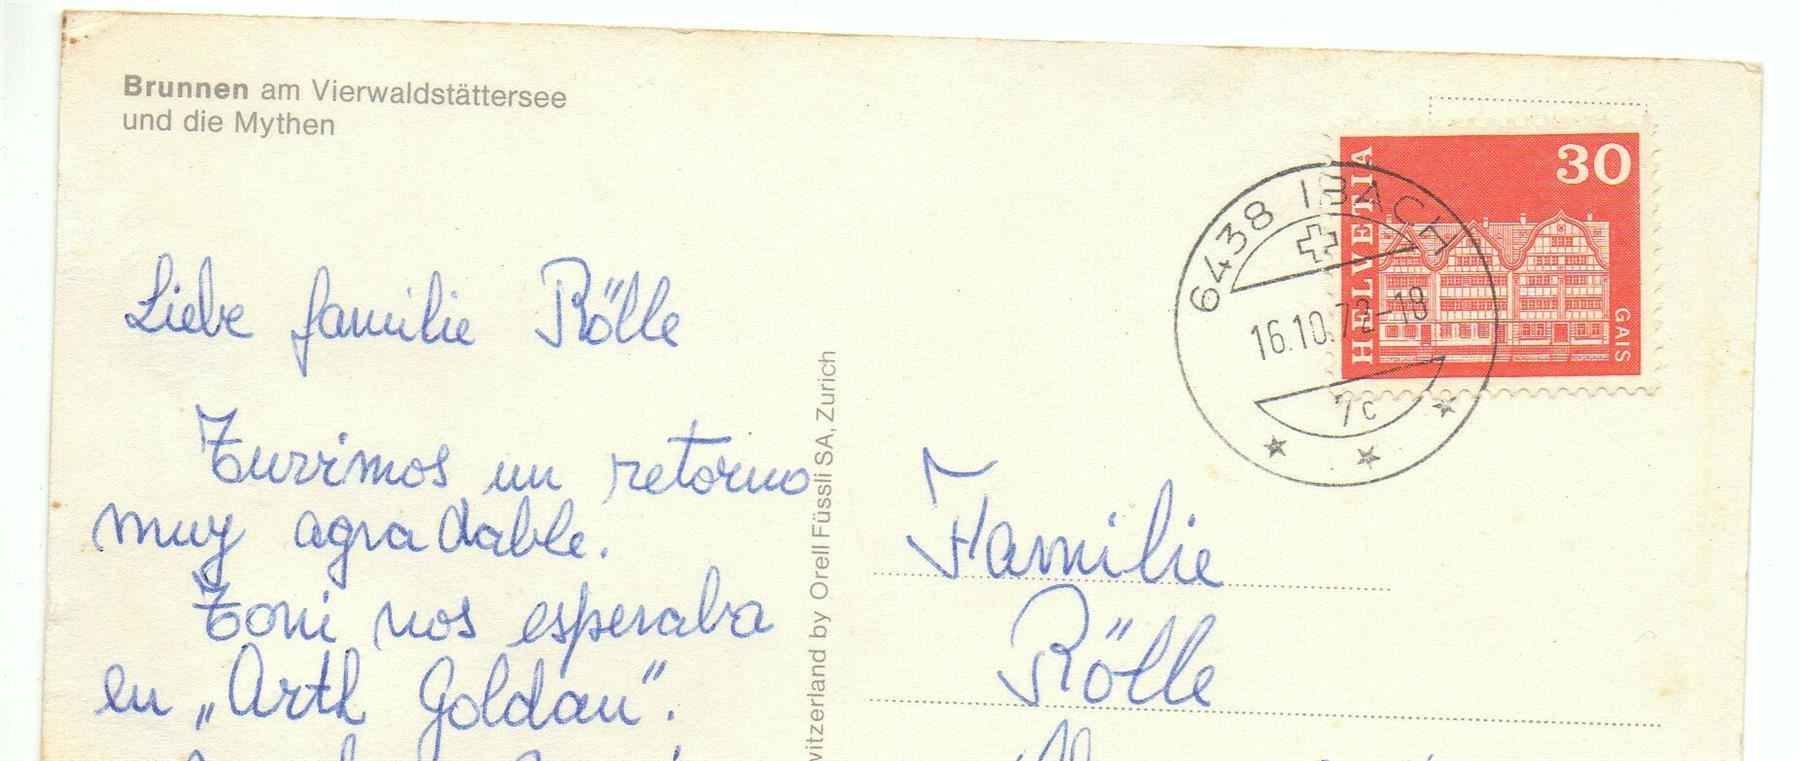 Brunnen am Vierwaldstättersee
und die Mythen
Liebe familie Rölle
Tuvimos un retorno
muy agradable.
Toni nos esperaba
en „Arth Goldau".
witzerland by Orell Füssli SA, Zurich
HELVETIA
30
GAIS
6438 IBACH
16.10.72-18
7c
Familie
Rölle